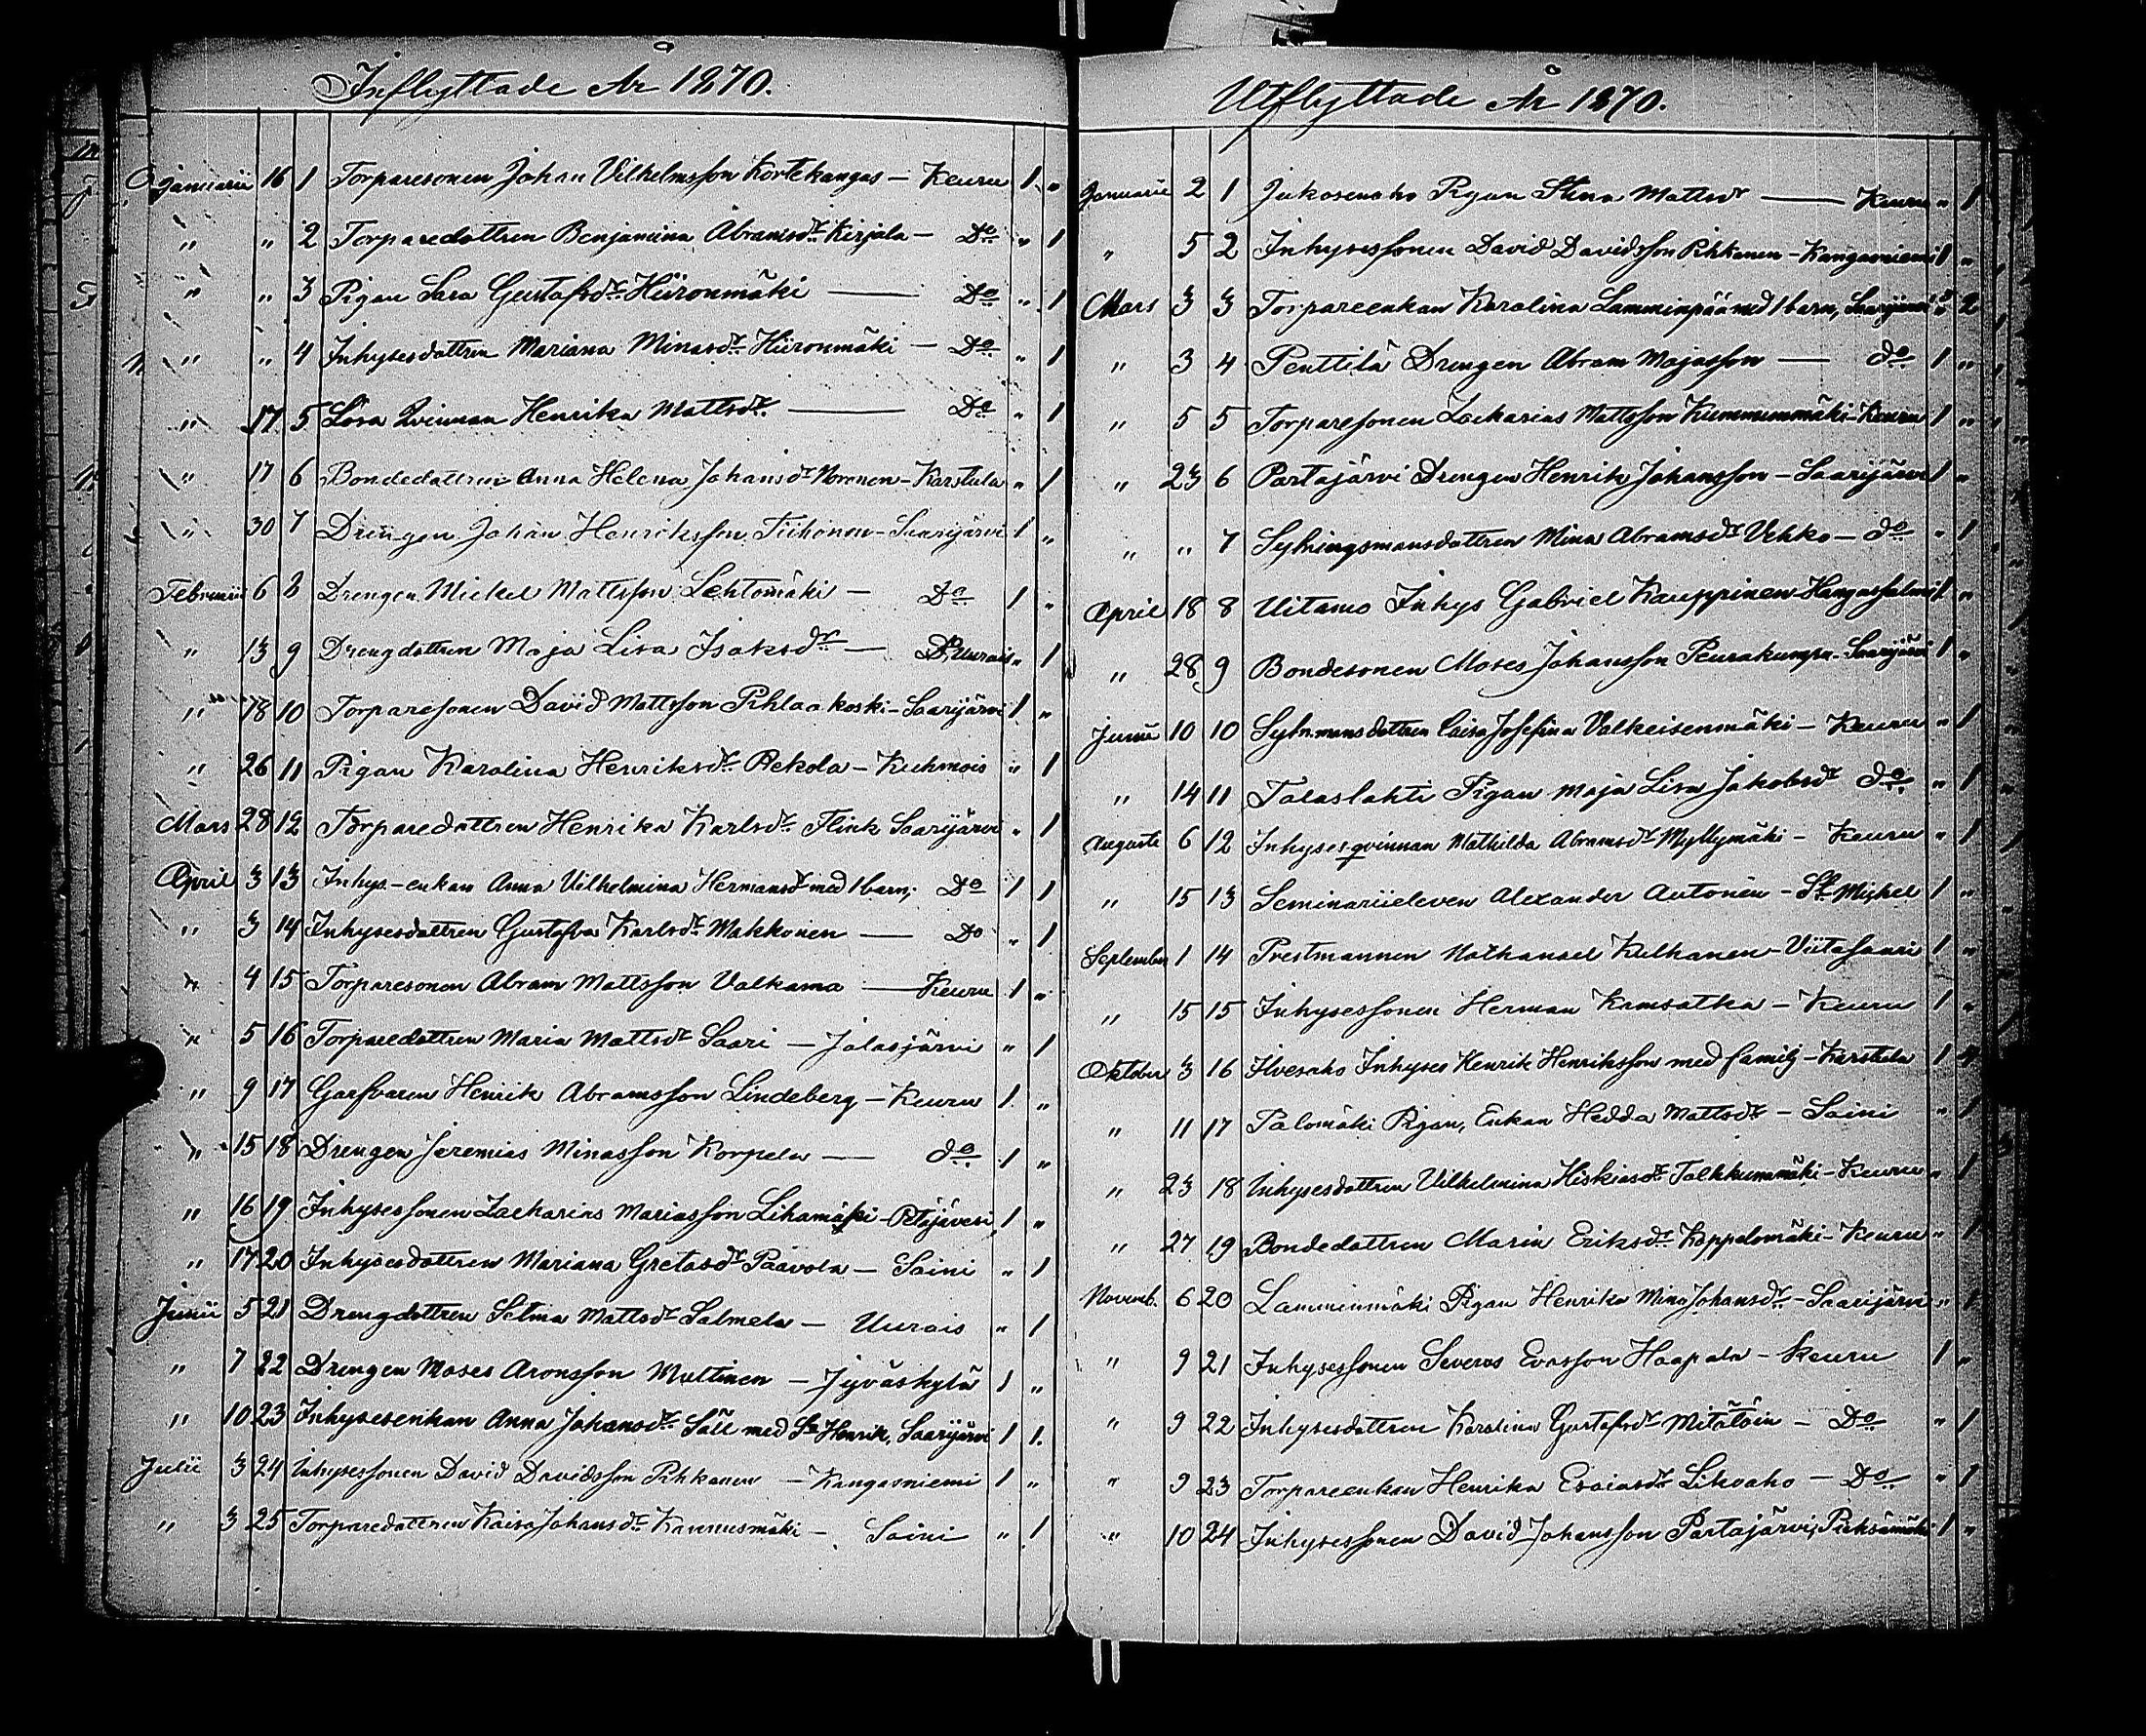 Inflyttade År 1870.
Januarii 16 1 Torparesonen Johan Vilhelmsson Kortekangas — Keuru 1 "
" " 2 Torparedottren Benjamina Abramsdr Kirjala — Do " 1
" " 3 Pigan Sara Gustafsdr Hiironmäki — Do " 1
" " 4 Inhysesdottren Mariana Minasdr Hiironmäki — Do " 1
" 17 5 Lösa Qvinnan Henrika Mattsdr — Do " 1
" 17 6 Bondedottren Anna Helena Johansdr Noronen - Karstula " 1
" 30 7 Drengen Johan Henriksson Tiihonen - Saarijärvi 1 "
Februarii 6 8 Drengen Mickel Mattsson Lehtomäki — Do 1 "
" 13 9 Drengdottren Maja Lisa Isaksdr — Uurais " 1
" 18 10 Torparesonen David Mattsson Pihlaakoski - Saarijärvi 1 "
" 26 11 Pigan Karolina Henriksdr Pekola - Kuhmois " 1
Mars 28 12 Torparedottren Henrika Karlsdr Flink Saarijärvi " 1
April 3 13 Inhys-enkan Anna Vilhelmina Hermansdr med 1 barn, Do 1 1
" 3 14 Inhysesdottren Gustafva Karlsdr Makkonen — Do " 1
" 4 15 Torparesonen Abram Mattsson Valkama — Keuru 1 "
" 5 16 Torparedottren Maria Mattsdr Saari — Jalasjärvi " 1
" 9 17 Garfvaren Henrik Abramsson Lindeberg — Keuru 1 "
" 15 18 Drengen Jeremias Minasson Korpela — do 1 "
" 16 19 Inhysessonen Zacharias Mariasson Likamäki - Petäjävesi 1 "
" 17 20 Inhysesdottren Mariana Gretasdr Paavola — Saini " 1
Junii 5 21 Drengdottren Selma Mattsdr Salmela — Uurais " 1
" 7 22 Drengen Moses Aronsson Muttinen — Jyväskylä 1 "
" 10 23 Inhysesenkan Anna Johansdr Säll med Sn Henrik, Saarijärvi 1 1.
Julii 3 24 Inhysessonen David Davidsson Pihkanen — Kangasniemi 1 "
" 3 25 Torparedottren Kaisa Johansdr Kannusmäki — Saini " 1
Utflyttade År 1870.
Januarii 2 1 Jukosenaho Pigan Stina Mattsdr — Keuru " 1
" 5 2 Inhysessonen David Davidsson Pihkanen - Kangasniemi 1 "
Mars 3 3 Torpareenkan Karolina Lamminpää med 1 barn, Saarijärvi " 2
" 3 4 Penttilä Drengen Abram Majasson — do 1 "
" 5 5 Torparesonen Zackarias Mattsson Kummunmäki - Keuru 1 "
" 23 6 Partajärvi Drengen Henrik Johansson - Saarijärvi 1 "
" " 7 Sytningsmansdottren Mina Abramsdr Vehko — do " 1
April 18 8 Uitamo Inhys Gabriel Kauppinen Hangassalmi 1 "
" 28 9 Bondesonen Moses Johansson Peurakumpu - Saarijärvi 1 "
Junii 10 10 Sytn.mansdottren Caisa Josefina Valkeisenmäki — Keuru " 1
" 14 11 Talaslahti Pigan Maja Lisa Jakobsdr do " 1
Augusti 6 12 Inhysesqvinnan Mathilda Abramsdr Myllymäki — Keuru " 1
" 15 13 Seminariieleven Alexander Autonén - St Michel 1 "
September 1 14 Prestmannen Nathanael Kulhanen - Viitasaari 1 "
" 15 15 Inhysessonen Herman Kamsatka — Keuru 1 "
Oktober 3 16 Ilvesaho Inhyses Henrik Henriksson med familj - Karstula 1 4
" 11 17 Palomäki Pigan, Enkan Hedda Mattsdr — Saini " 1
" 23 18 Inhysesdottren Vilhelmina Hiskiasdr Talkkunmäki - Keuru " 1
" 27 19 Bondedottren Maria Eriksdr Koppelomäki - Keuru " 1
Novemb. 6 20 Lamminmäki Pigan Henrika Mina Johansdr - Saarijärvi " 1
" 9 21 Inhysessonen Severus Evasson Haapala — Keuru 1 "
" 9 22 Inhysesdottren Karolina Gustafsdr Mitälöin — Do " 1
" 9 23 Torpareenkan Henrika Esaiasdr Likoaho — Do " 1
" 10 24 Inhysessonen David Johansson Partajärvi, Pieksämäki 1 "